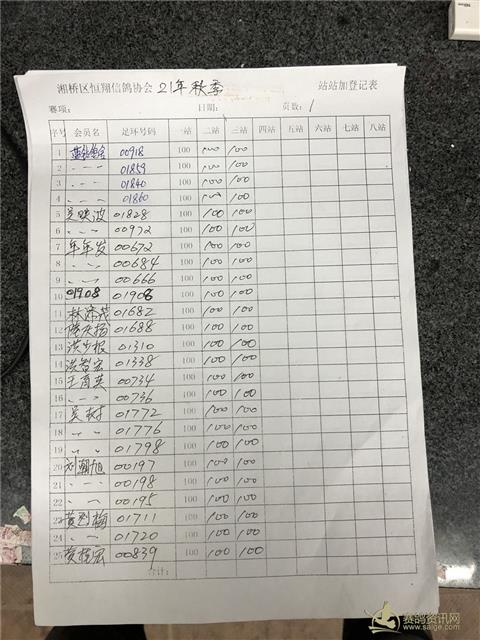 湘桥区恒翔信鸽协会 21年秋季 站站加登记表
赛项: 日期: 页数: 1
序号 会员名 足环号码 一站 二站 三站 四站 五站 六站 七站 八站
1 00918 100 100 100
2 〃 〃 01859 100 100 100
3 〃 〃 01840 100 100 100
4 〃 〃 01860 100 100 100
5 吴映波 01828 100 100 100
6 〃 〃 00972 100 100 100
7 年年发 00672 100 100 100
8 〃 〃 00684 100 100 100
9 〃 〃 00666 100 100 100
10 01908 01908 100 100 100
11 林 01682 100 100 100
12 01688 100 100 100
13 洪少报 01310 100 100 100
14 洪智宏 01338 100 100 100
15 王 英 00734 100 100 100
16 〃 〃 00736 100 100 100
17 吴树 01772 100 100 100
18 〃 〃 01776 100 100 100
19 〃 〃 01798 100 100 100
20 刘瀚旭 00197 100 100 100
21 〃 〃 00198 100 100 100
22 〃 〃 00195 100 100 100
23 黄 梅 01711 100 100 100
24 〃 〃 01720 100 100 100
25 宏 00839 100 100 100
合计:
赛鸽资讯网
www.saige.com